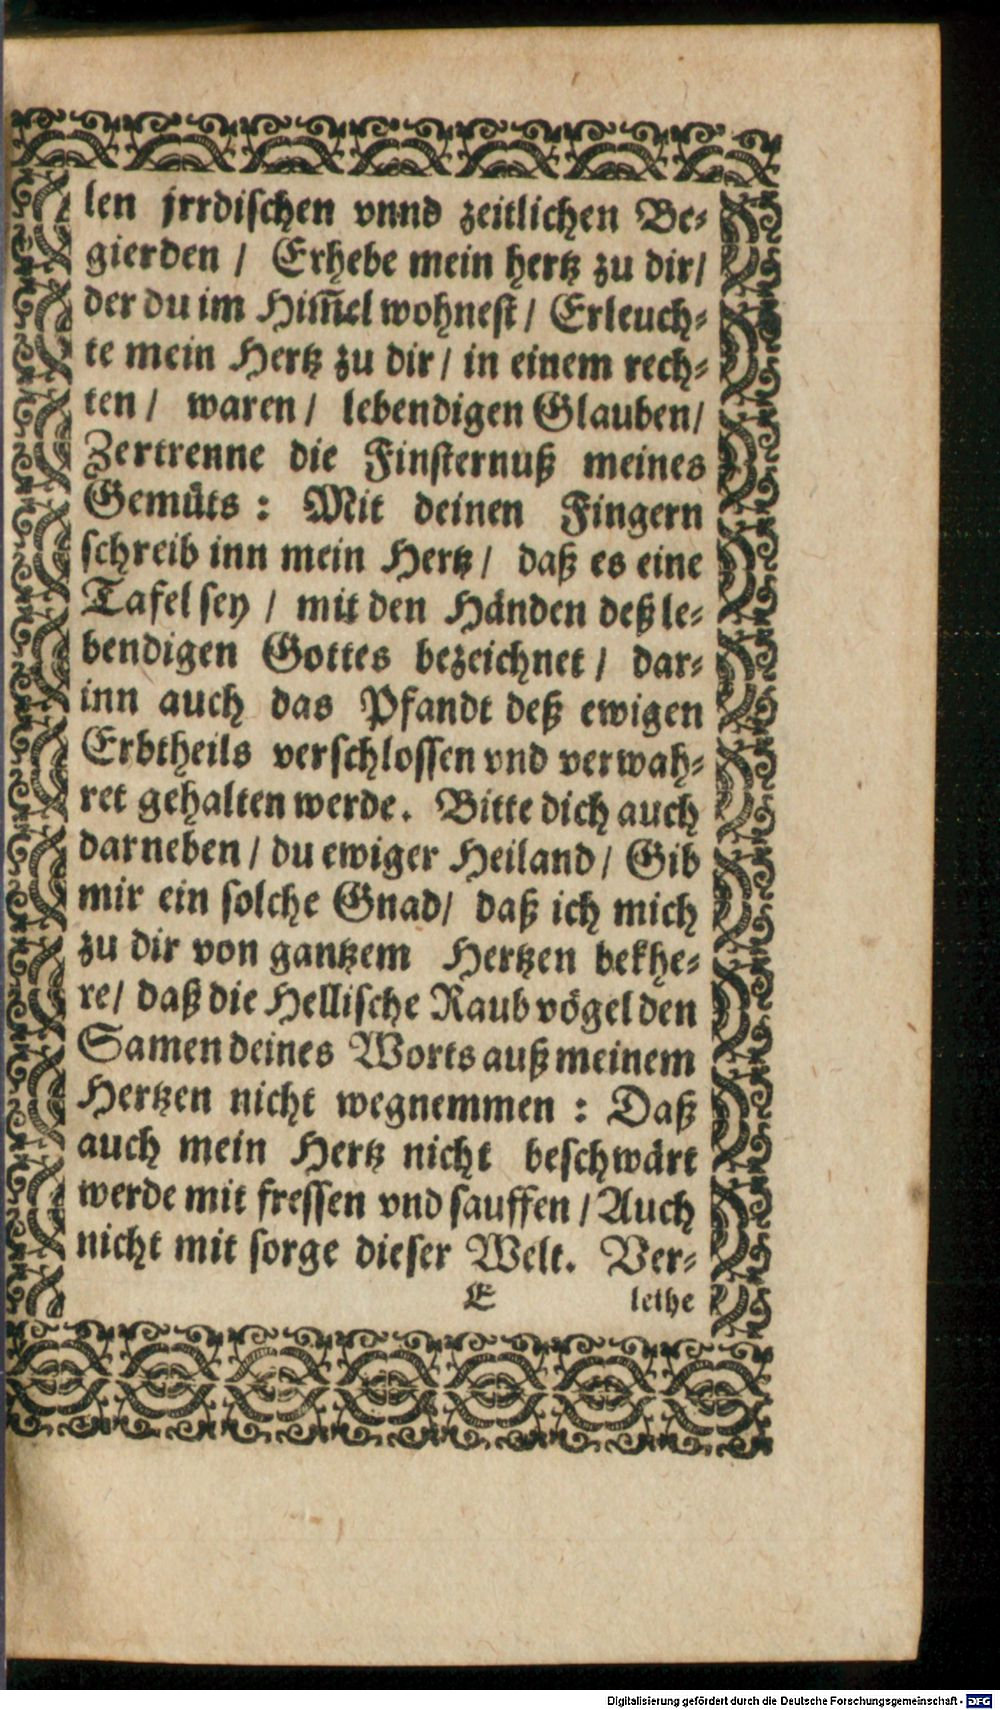 len jrrdischen vnnd zeitlichen Be-
gierden / Erhebe mein hertz zu dir/
der du im Him̃el wohnest / Erleuch-
te mein Hertz zu dir / in einem rech-
ten / waren / lebendigen Glauben/
Zertrenne die Finsternuß meines
Gemüts : Mit deinen Fingern
schreib inn mein Hertz / daß es eine
Tafel sey / mit den Händen deß le-
bendigen Gottes bezeichnet / dar-
inn auch das Pfandt deß ewigen
Erbtheils verschlossen vnd verwah-
ret gehalten werde. Bitte dich auch
darneben / du ewiger Heiland / Gib
mir ein solche Gnad / daß ich mich
zu dir von gantzem Hertzen bekhe-
re / daß die Hellische Raubvögel den
Samen deines Worts auß meinem
Hertzen nicht wegnemmen : Daß
auch mein Hertz nicht beschwärt
werde mit fressen vnd sauffen / Auch
nicht mit sorge dieser Welt. Ver-
E leihe
Digitalisierung gefördert durch die Deutsche Forschungsgemeinschaft - DFG